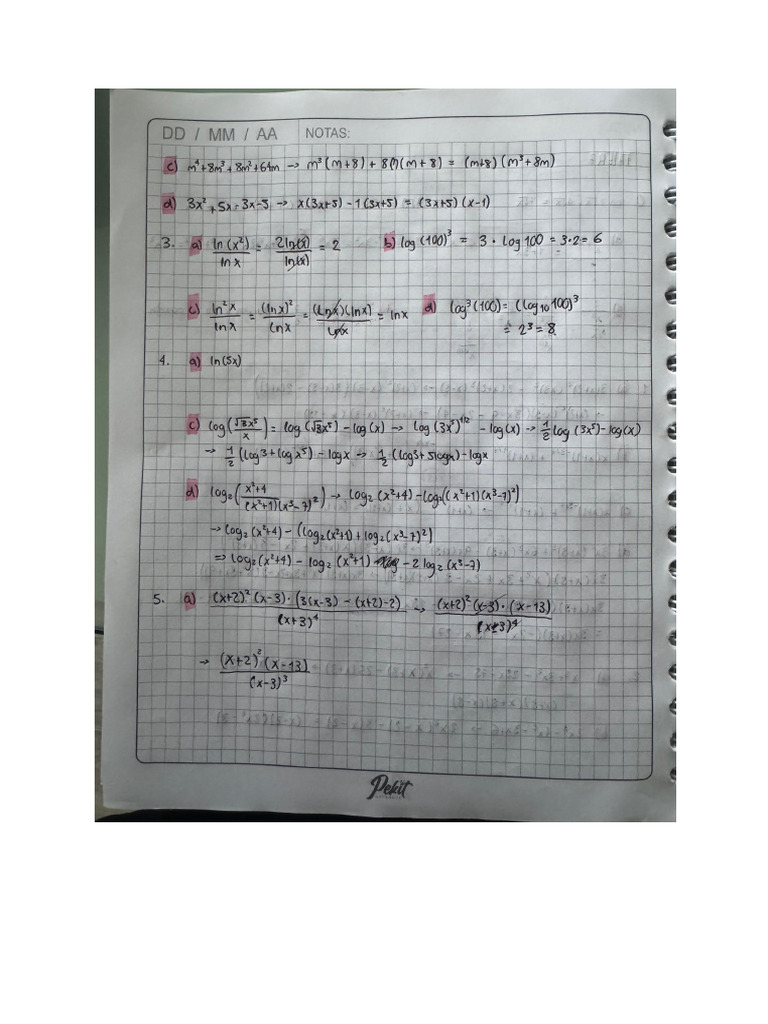 DD / MM / AA NOTAS:
c) m⁴+8m³+8m²+64m → m³(m+8) + 8(?)(m+8) = (m+8)(m³+8m)
d) 3x²+5x-3x-5 → x(3x+5)-1(3x+5) = (3x+5)(x-1)
3. a) ln(x²)/ln x = 2ln(x)/ln(x) = 2 b) log(100)³ = 3 · log 100 = 3·2 = 6
c) ln²x/ln x = (ln x)²/ln x = (ln x)(ln x)/ln x = ln x d) log³(100) = (log₁₀ 100)³
= 2³ = 8
4. a) ln(5x)
c) log(√3x⁵/x) = log(√3x⁵) - log(x) → log(3x⁵)^1/2 - log(x) → 1/2 log(3x⁵) - log(x)
→ 1/2 (log 3 + log x⁵) - log x → 1/2 (log 3 + 5 log x) - log x
d) log₂(x²+4/(x²+1)(x³-7)²) → log₂(x²+4) - log₂((x²+1)(x³-7)²)
→ log₂(x²+4) - (log₂(x²+1) + log₂(x³-7)²)
⇒ log₂(x²+4) - log₂(x²+1) - 2 log₂(x³-7)
5. a) (x+2)²(x-3)·(3(x-3) - (x+2)-2)/(x+3)⁴ → (x+2)²(x-3)·(x-13)/(x-3)⁴
→ (x+2)²(x-13)/(x-3)³
Pekit